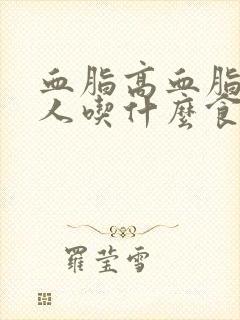 血脂高血脂
人喫什麼食
羅莹雪